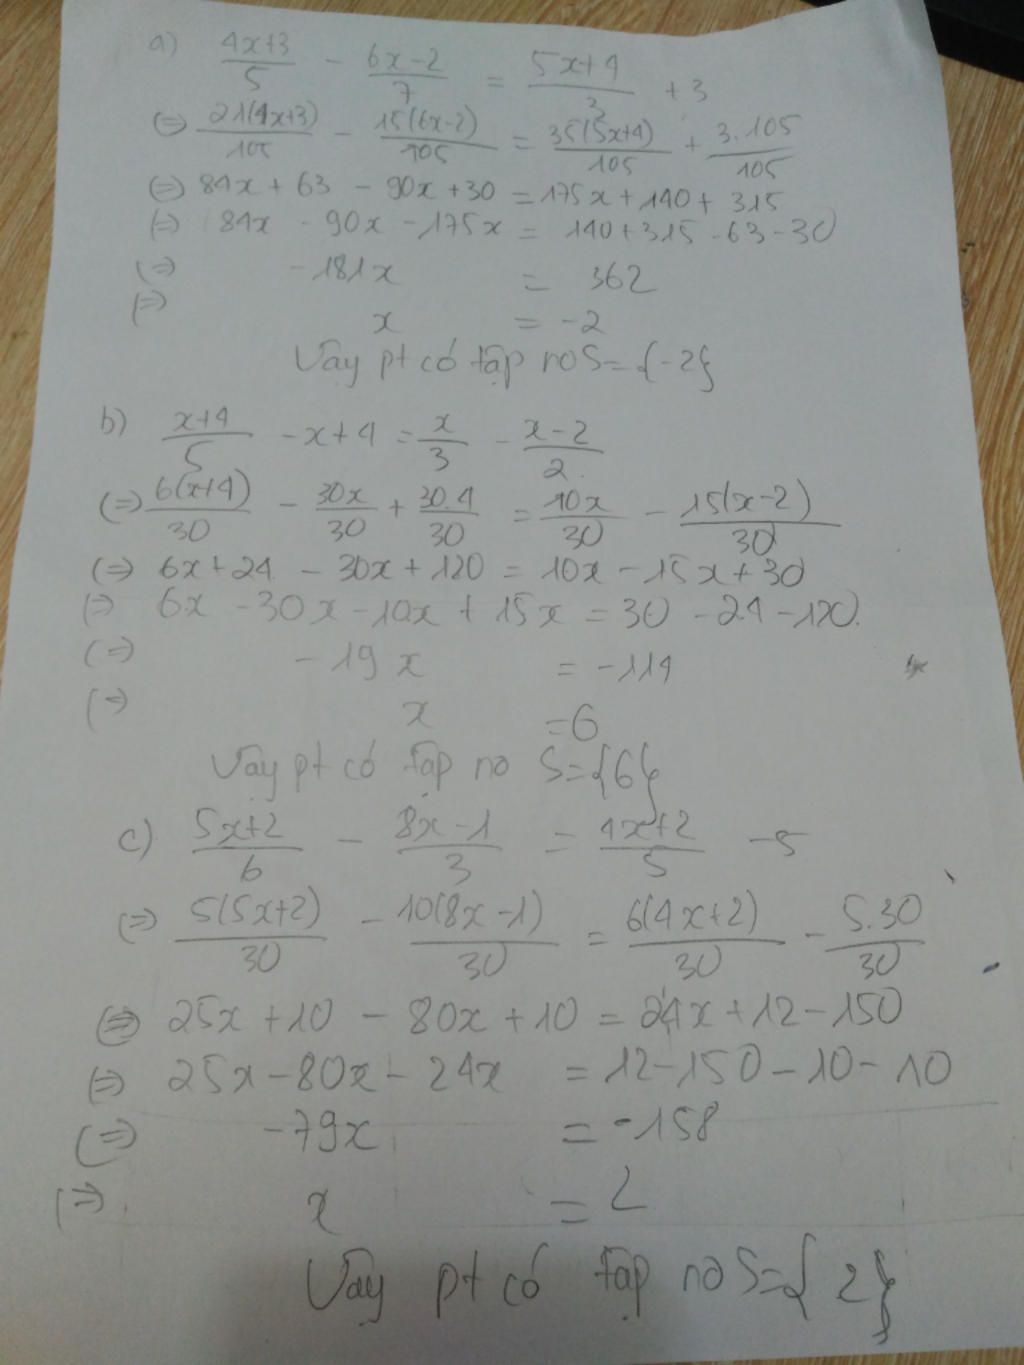 a) (4x+3)/5 - (6x-2)/7 = (5x+4)/3 + 3
(=) 21(4x+3)/105 - 15(6x-2)/105 = 35(5x+4)/105 + 3.105/105
(=) 84x + 63 - 90x + 30 = 175x + 140 + 315
(=) 84x - 90x - 175x = 140 + 315 - 63 - 30
(=) -181x = 362
(=) x = -2
Vậy pt có tập no S = {-2}
b) (x+4)/5 - x + 4 = x/3 - (x-2)/2
(=) 6(x+4)/30 - 30x/30 + 30.4/30 = 10x/30 - 15(x-2)/30
(=) 6x + 24 - 30x + 120 = 10x - 15x + 30
(=) 6x - 30x - 10x + 15x = 30 - 24 - 120
(=) -19x = -114
(=) x = 6
Vậy pt có tập no S = {6}
c) (5x+2)/6 - (8x-1)/3 = (4x+2)/5 - 5
(=) 5(5x+2)/30 - 10(8x-1)/30 = 6(4x+2)/30 - 5.30/30
(=) 25x + 10 - 80x + 10 = 24x + 12 - 150
(=) 25x - 80x - 24x = 12 - 150 - 10 - 10
(=) -79x = -158
(=) x = 2
Vậy pt có tập no S = {2}